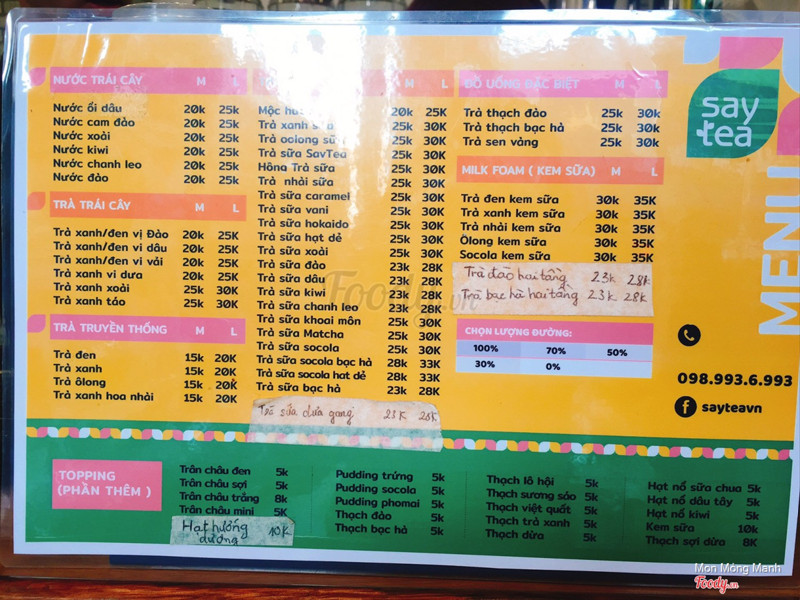 NƯỚC TRÁI CÂY M L
Nước ổi dâu 20k 25k
Nước cam đào 20k 25k
Nước xoài 20k 25k
Nước kiwi 20k 25k
Nước chanh leo 20k 25k
Nước đào 20k 25k
TRÀ TRÁI CÂY M L
Trà xanh/đen vị Đào 20k 25k
Trà xanh/đen vi dâu 20k 25k
Trà xanh/đen vi vải 20k 25k
Trà xanh vi dưa 20k 25k
Trà xanh xoài 25k 30k
Trà xanh táo 25k 30K
TRÀ TRUYỀN THỐNG M L
Trà đen 15k 20K
Trà xanh 15k 20K
Trà ôlong 15k 20k
Trà xanh hoa nhài 15k 20K
M L
Mộc 20k 25K
Trà xanh sữa 25k 30K
Trà oolong sữa 25k 30K
Trà sữa SavTea 25k 30K
Hông Trà sữa 25k 30K
Trà nhài sữa 25k 30K
Trà sữa caramel 25k 30K
Trà sữa vani 25k 30K
Trà sữa hokaido 25k 30K
Trà sữa hạt dẻ 25k 30K
Trà sữa xoài 25k 30K
Trà sữa đào 23k 28K
Trà sữa dâu 23k 28K
Trà sữa kiwi 23k 28K
Trà sữa chanh leo 23k 28K
Trà sữa khoai môn 25k 30K
Trà sữa Matcha 25k 30K
Trà sữa socola 25k 30K
Trà sữa socola bạc hà 28k 33K
Trà sữa socola hat dẻ 28k 33K
Trà sữa bạc hà 23k 28K
Trà sữa dưa gang 23K 28K
ĐỒ UỐNG ĐẶC BIỆT M L
Trà thạch đào 25k 30k
Trà thạch bạc hà 25k 30k
Trà sen vàng 25k 30k
MILK FOAM ( KEM SỮA) M L
Trà đen kem sữa 30k 35K
Trà xanh kem sữa 30k 35K
Trà nhài kem sữa 30k 35K
Ôlong kem sữa 30k 35K
Socola kem sữa 30k 35K
Trà đào hai tầng 23k 28k
Trà bạc hà hai tầng 23K 28K
CHỌN LƯỢNG ĐƯỜNG:
100% 70% 50%
30% 0%
say
tea
MENU
098.993.6.993
f sayteavn
TOPPING
(PHẦN THÊM )
Trân châu đen 5k
Trân châu sợi 5k
Trân châu trắng 8k
Trân châu mini 5K
Hạt hướng dương 10K
Pudding trứng 5k
Pudding socola 5k
Pudding phomai 5k
Thạch đào 5k
Thạch bạc hà 5k
Thạch lô hội 5k
Thạch sương sáo 5k
Thạch việt quất 5k
Thạch trà xanh 5k
Thạch dừa 5k
Hạt nổ sữa chua 5k
Hạt nổ dâu tây 5k
Hạt nổ kiwi 5k
Kem sữa 10k
Thạch sợi dừa 8K
Foody.vn
Mon Mỏng Manh
Foody.vn